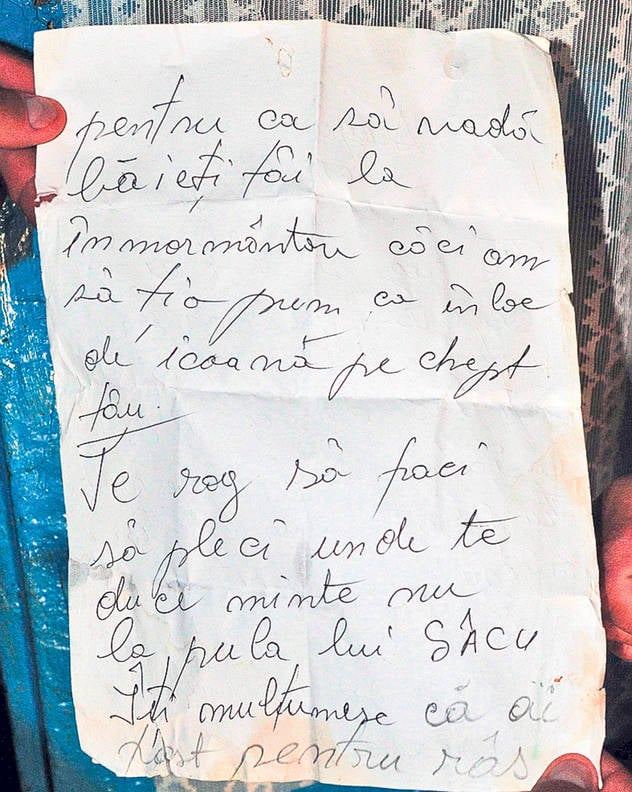 pentru ca să vadă
băieți tăi la
înmormântau căci am
să ți-o pum ca în loc
de icoană pe chept
tău.
Te rog să faci
să pleci unde te
duce minte nu
la pula lui SÂCU
Îți mulțumesc că ai
fost pentru râs